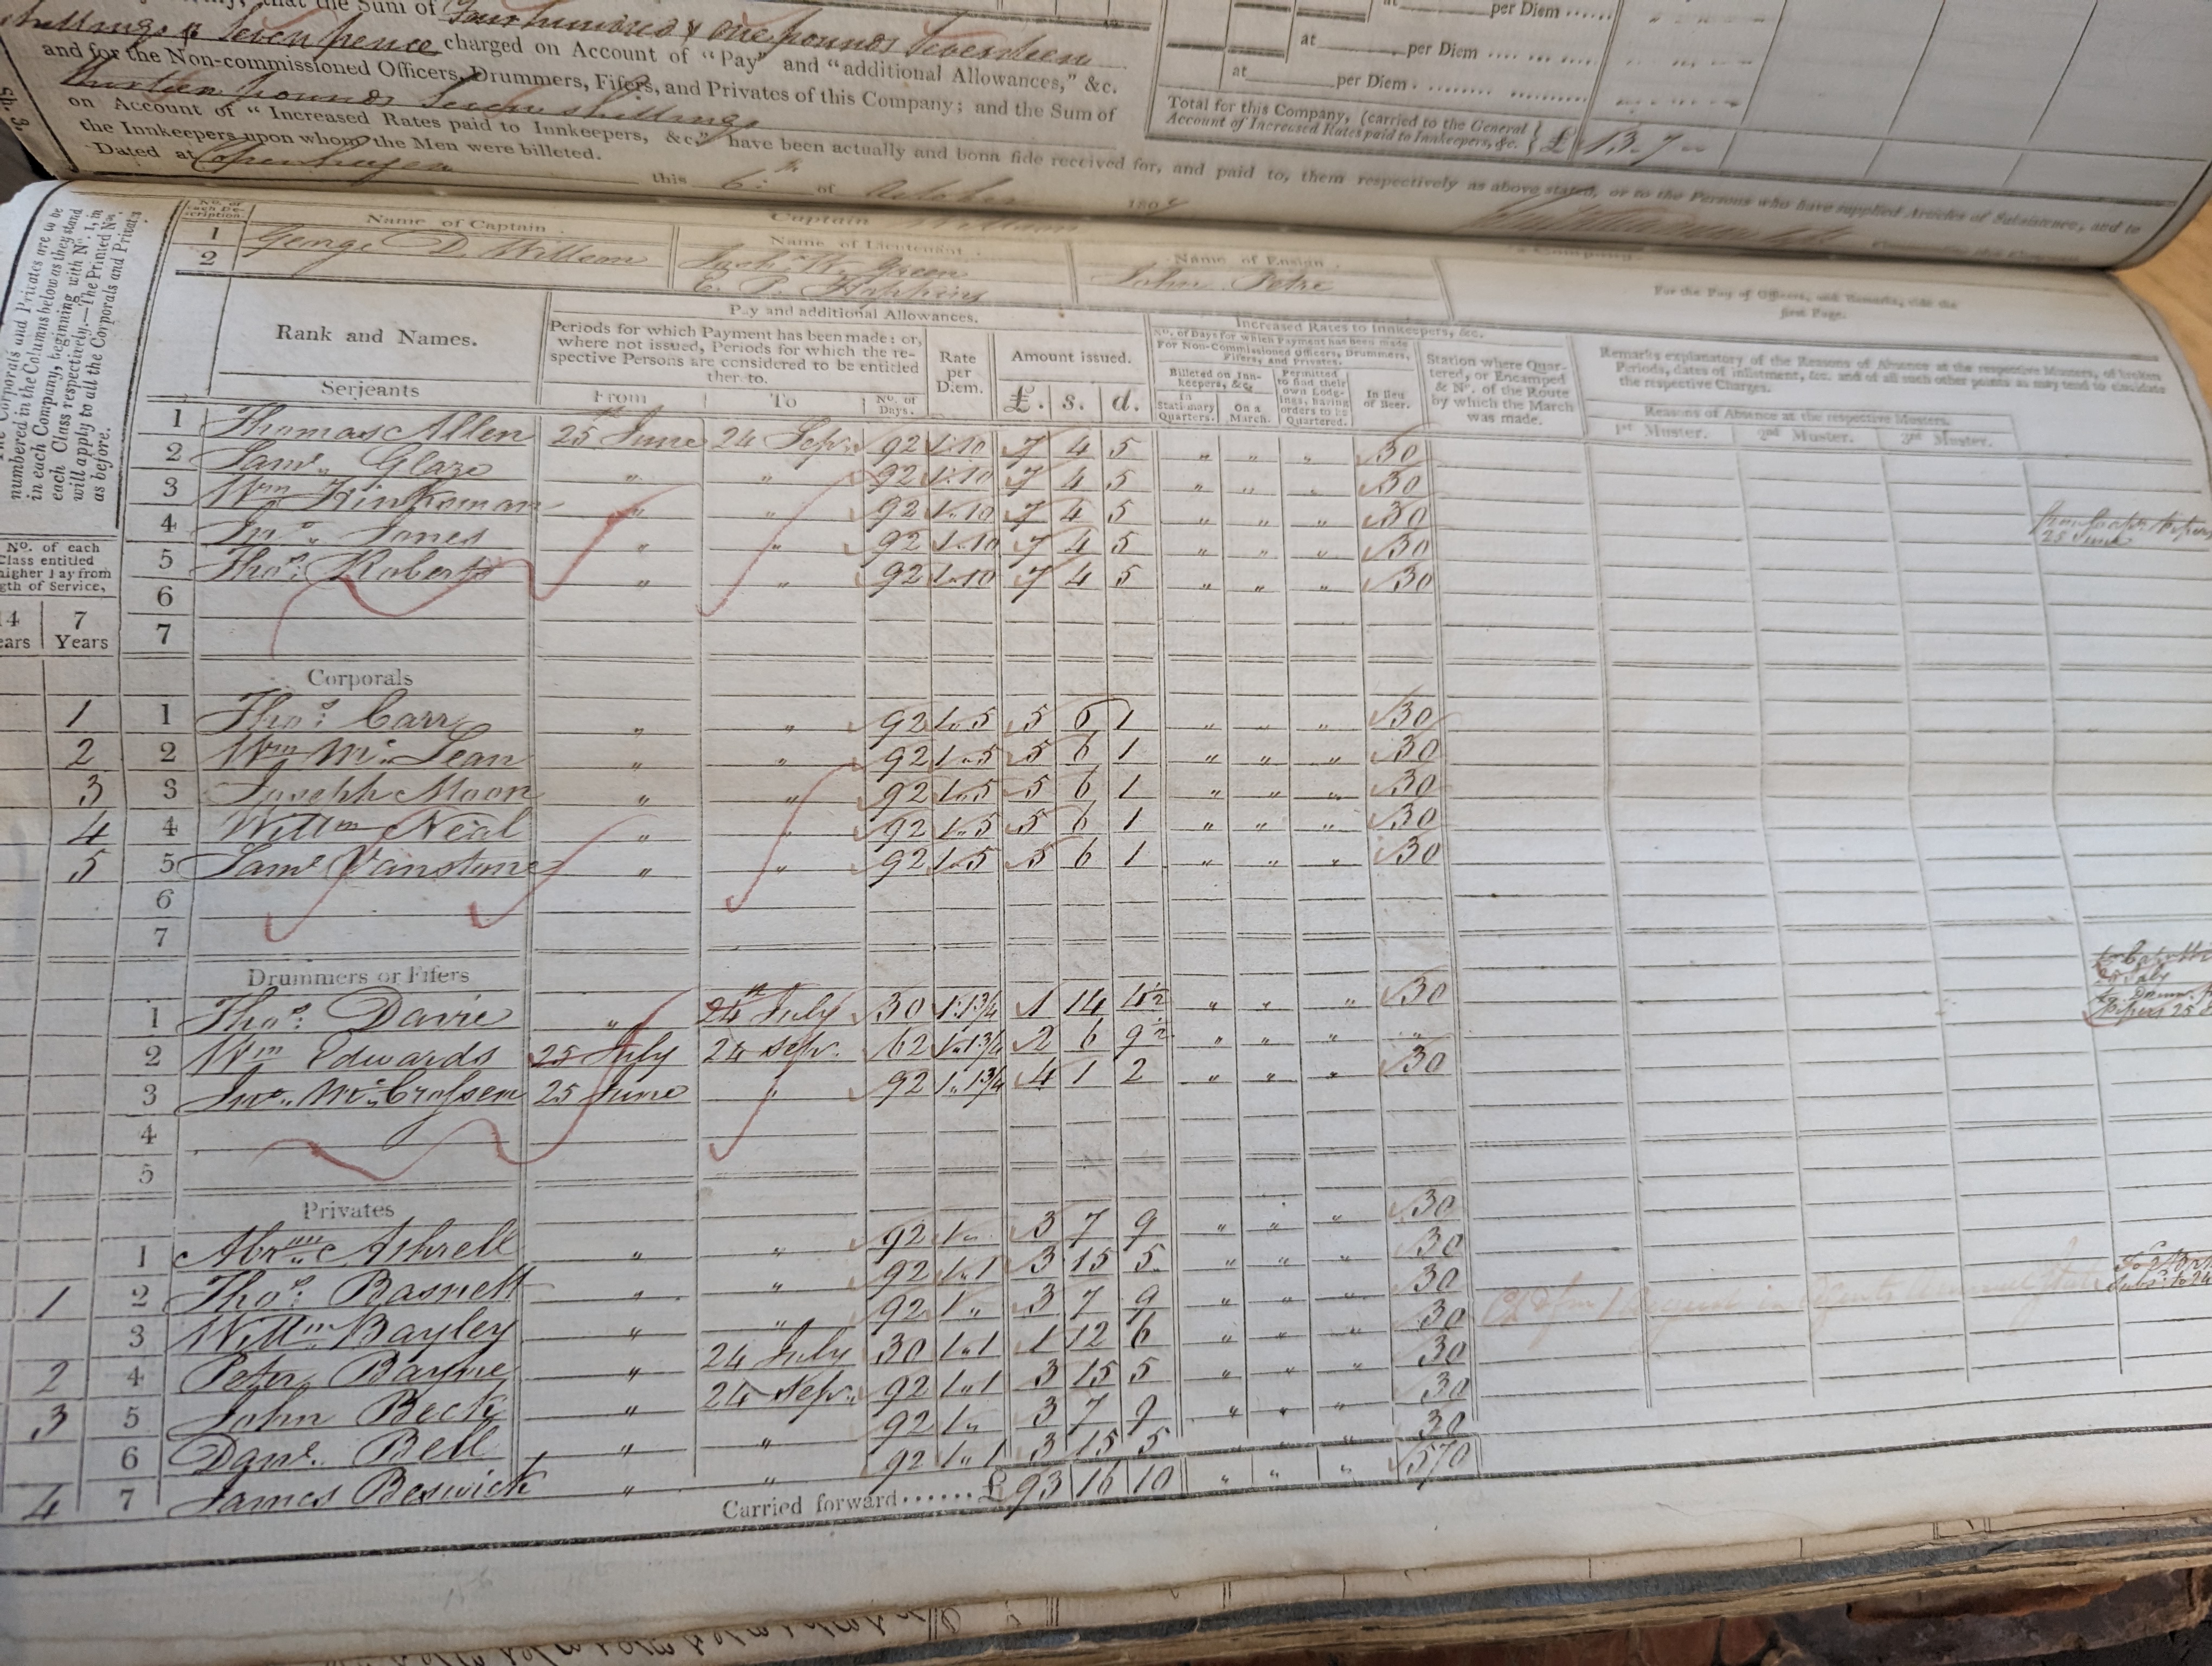 that the Sum of Four hundred & one pounds Seventeen
shillings & Seven pence charged on Account of "Pay" and "additional Allowances," &c.
and for the Non-commissioned Officers, Drummers, Fifers, and Privates of this Company; and the Sum of
Thirteen pounds Seven shillings
on Account of "Increased Rates paid to Innkeepers, &c." have been actually and bona fide received for, and paid to, them respectively as above stated, or to the Persons who have supplied Articles of Subsistence, and to
the Innkeepers upon whom the Men were billeted.
Dated at Copenhagen this 6th of October 180
at per Diem
at per Diem
at per Diem
Total for this Company, (carried to the General
Account of Increased Rates paid to Innkeepers, &c. £ 13 . 7 "
Corporals and Privates are to be
numbered in the Columns below as they stand
in each Company, beginning with No. 1, in
each Class respectively.—The Printed Nos.
will apply to all the Corporals and Privates
as before.
No. of each Description. Name of Captain. Captain Name of Lieutenant. Name of Ensign.
1 George D. Willson Green John Petre
2 E. P. Hopkins
For the Pay of Officers, and Remarks, vide the
first Page.
Rank and Names.
Pay and additional Allowances.
Periods for which Payment has been made: or,
where not issued, Periods for which the re-
spective Persons are considered to be entitled
ther-to.
From To No. of Days.
Rate per Diem.
Amount issued.
£. s. d.
Increased Rates to Innkeepers, &c.
No. of Days for which Payment has been made
For Non-Commissioned Officers, Drummers,
Fifers, and Privates.
Billeted on Inn-
keepers, &c.
In Stationary Quarters. On a March.
Permitted
to find their
own Lodg-
ings, having
orders to be
Quartered.
In lieu of Beer.
Station where Quar-
tered, or Encamped
& No. of the Route
by which the March
was made.
Remarks explanatory of the Reasons of Absence at the respective Musters, of broken
Periods, dates of inlistment, &c. and of all such other points as may tend to elucidate
the respective Charges.
Reasons of Absence at the respective Musters.
1st Muster. 2nd Muster. 3rd Muster.
No. of each
Class entitled
higher Pay from
gth of Service,
14 Years 7 Years
Serjeants
1 Thomas Allen 25th June 24 Sepr. 92 1.10 7 4 5 " " " 30
2 Saml. Glaze " " 92 1.10 7 4 5 " " " 30
3 Wm Hinksman " " 92 1.10 7 4 5 " " " 30
4 Jno. Jones " " 92 1.10 7 4 5 " " " 30
25 June
5 Thos. Roberts " " 92 1.10 7 4 5 " " " 30
6
7
Corporals
1 1 Thos. Carr " " 92 1.5 5 6 1 " " " 30
2 2 Wm Mc.Lean " " 92 1.5 5 6 1 " " " 30
3 3 Joseph Moon " " 92 1.5 5 6 1 " " " 30
4 4 Willm Neal " " 92 1.5 5 6 1 " " " 30
5 5 Saml Vanstone " " 92 1.5 5 6 1 " " " 30
6
7
Drummers or Fifers
1 Thos. Davie " 24th July 30 1.1¾ 1 14 4½ " " " 30
2 Wm Edwards 25 July 24 Sepr. 62 1.1¾ 2 6 9½ " " " "
3 Jno. Mc.Crossen 25 June " 92 1.1¾ 4 1 2 " " " 30
4
5
Privates
1 Abrm. Ashrell " " 92 1 " 3 7 9 " " " 30
1 2 Thos. Basnett " " 92 1.1 3 15 5 " " " 30
3 Willm Bayley " " 92 1 " 3 7 9 " " " 30
2 4 Peter Bayne " 24 July 30 1.1 1 12 6 " " " 30
3 5 John Beck " 24 Sepr. 92 1.1 3 15 5 " " " 30
6 Danl. Bell " " 92 1 " 3 7 9 " " " 30
4 7 James Beswick " " 92 1.1 3 15 5 " " " 30
Carried forward £ 93 16 10 " " " 570